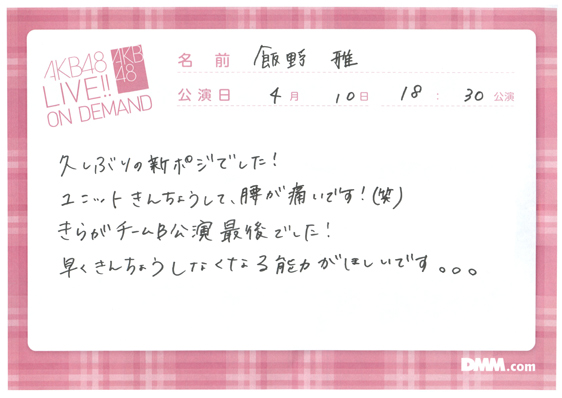 AKB48
LIVE!!
ON DEMAND
AKB
48
名前 飯野 雅
公演日 4月 10日 18:30公演
久しぶりの新ポジでした!
ユニットきんちょうして、腰が痛いです!(笑)
きらがチームB公演最後でした!
早くきんちょうしなくなる能力がほしいです。。。
DMM.com